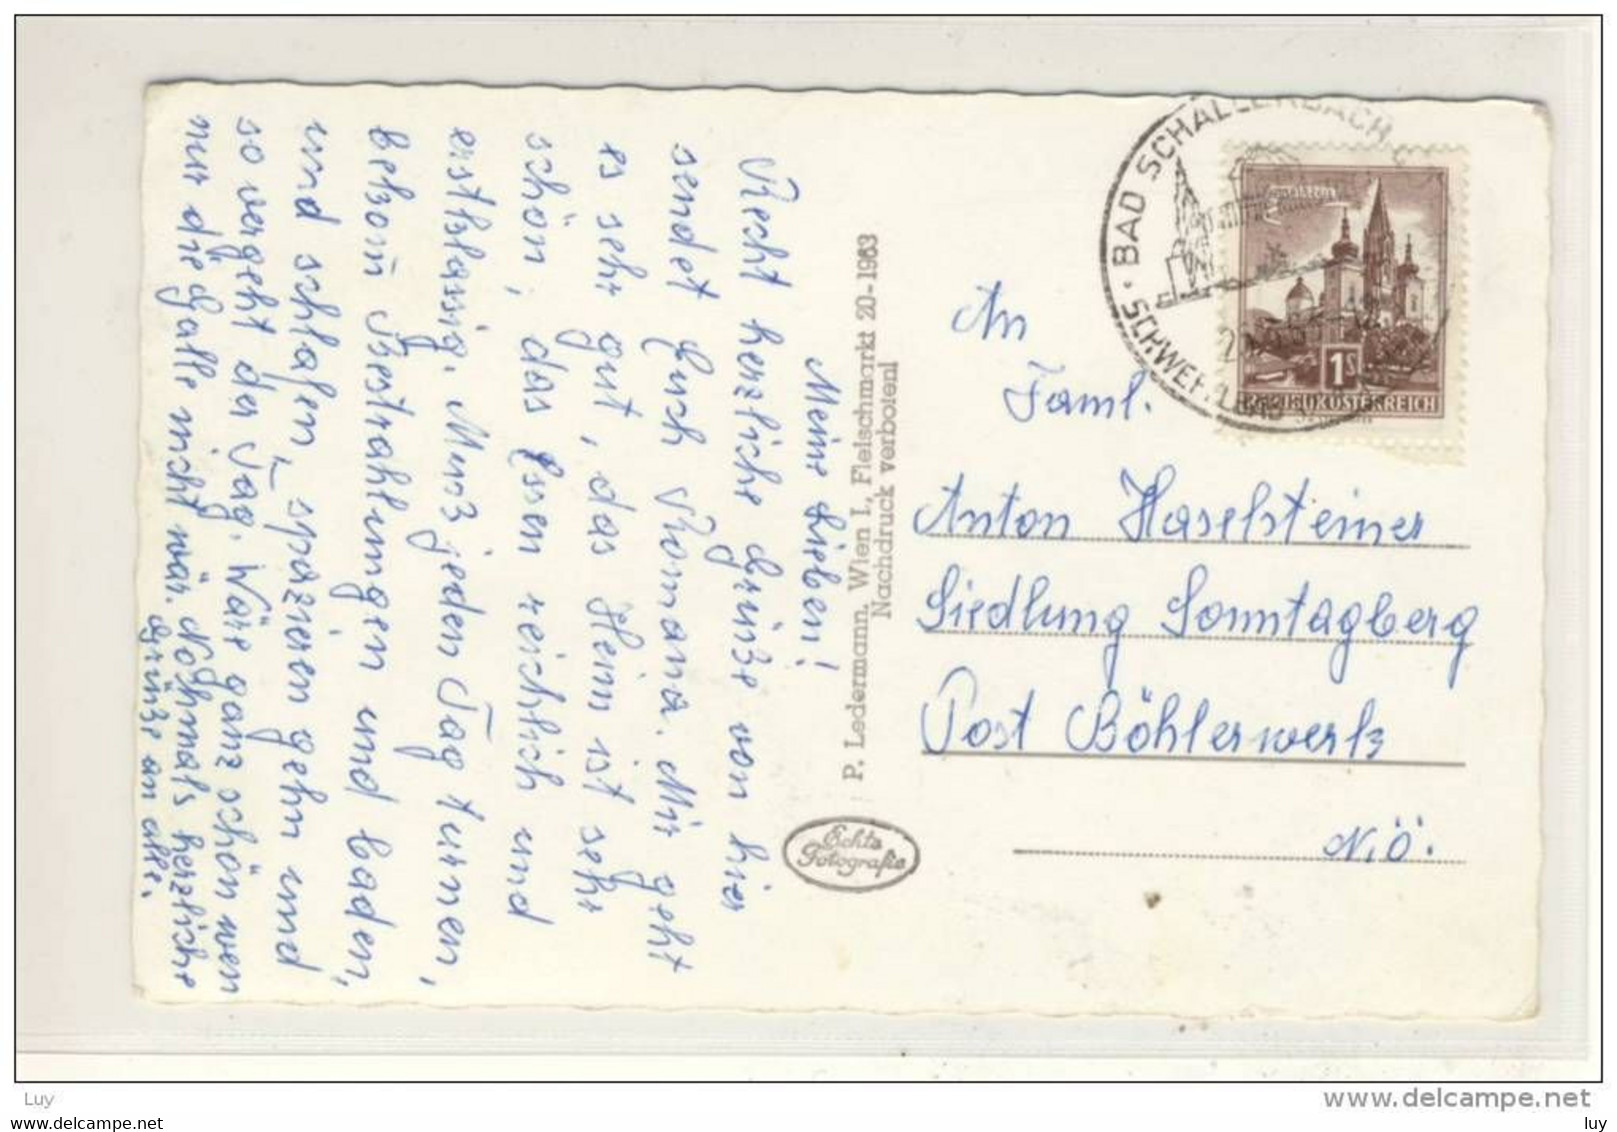 Meine Lieben!
Recht herzliche Grüße von hier
sendet Euch Romana. Mir geht
es sehr gut, das Heim ist sehr
schön, das Essen reichlich und
erstklassig. Muß jeden Tag turnen,
bekom̄ Bestrahlungen und baden,
und schlafen, spazieren gehn und
so vergeht der Tag. Wäre ganz schön wen
mir die Galle nicht wär. Nochmals herzliche
Grüße an alle.
P. Ledermann, Wien I., Fleischmarkt 20-1963
Nachdruck verboten!
Echte
Fotografie
BAD SCHALLERBACH
SCHWEFEL
1S
REPUBLIK ÖSTERREICH
An
Faml.
Anton Haselsteiner
Siedlung Sonntagberg
Post Böhlerwerk
N.Ö.
www.delcampe.net
Luy
luy